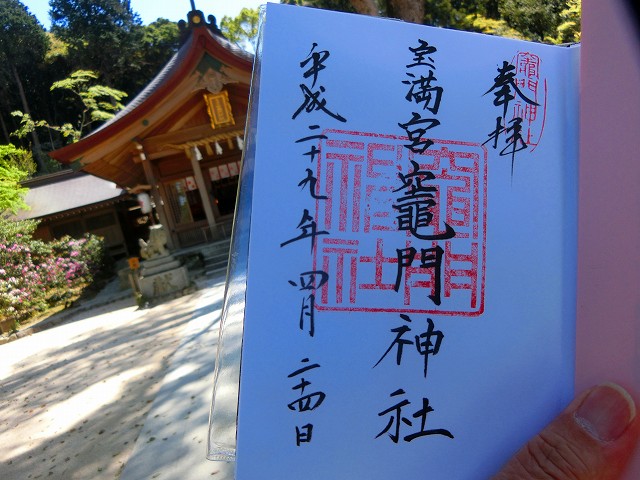 奉拝
竈門神社
宝満宮竈門神社
竈門神社
平成二十九年四月二十四日